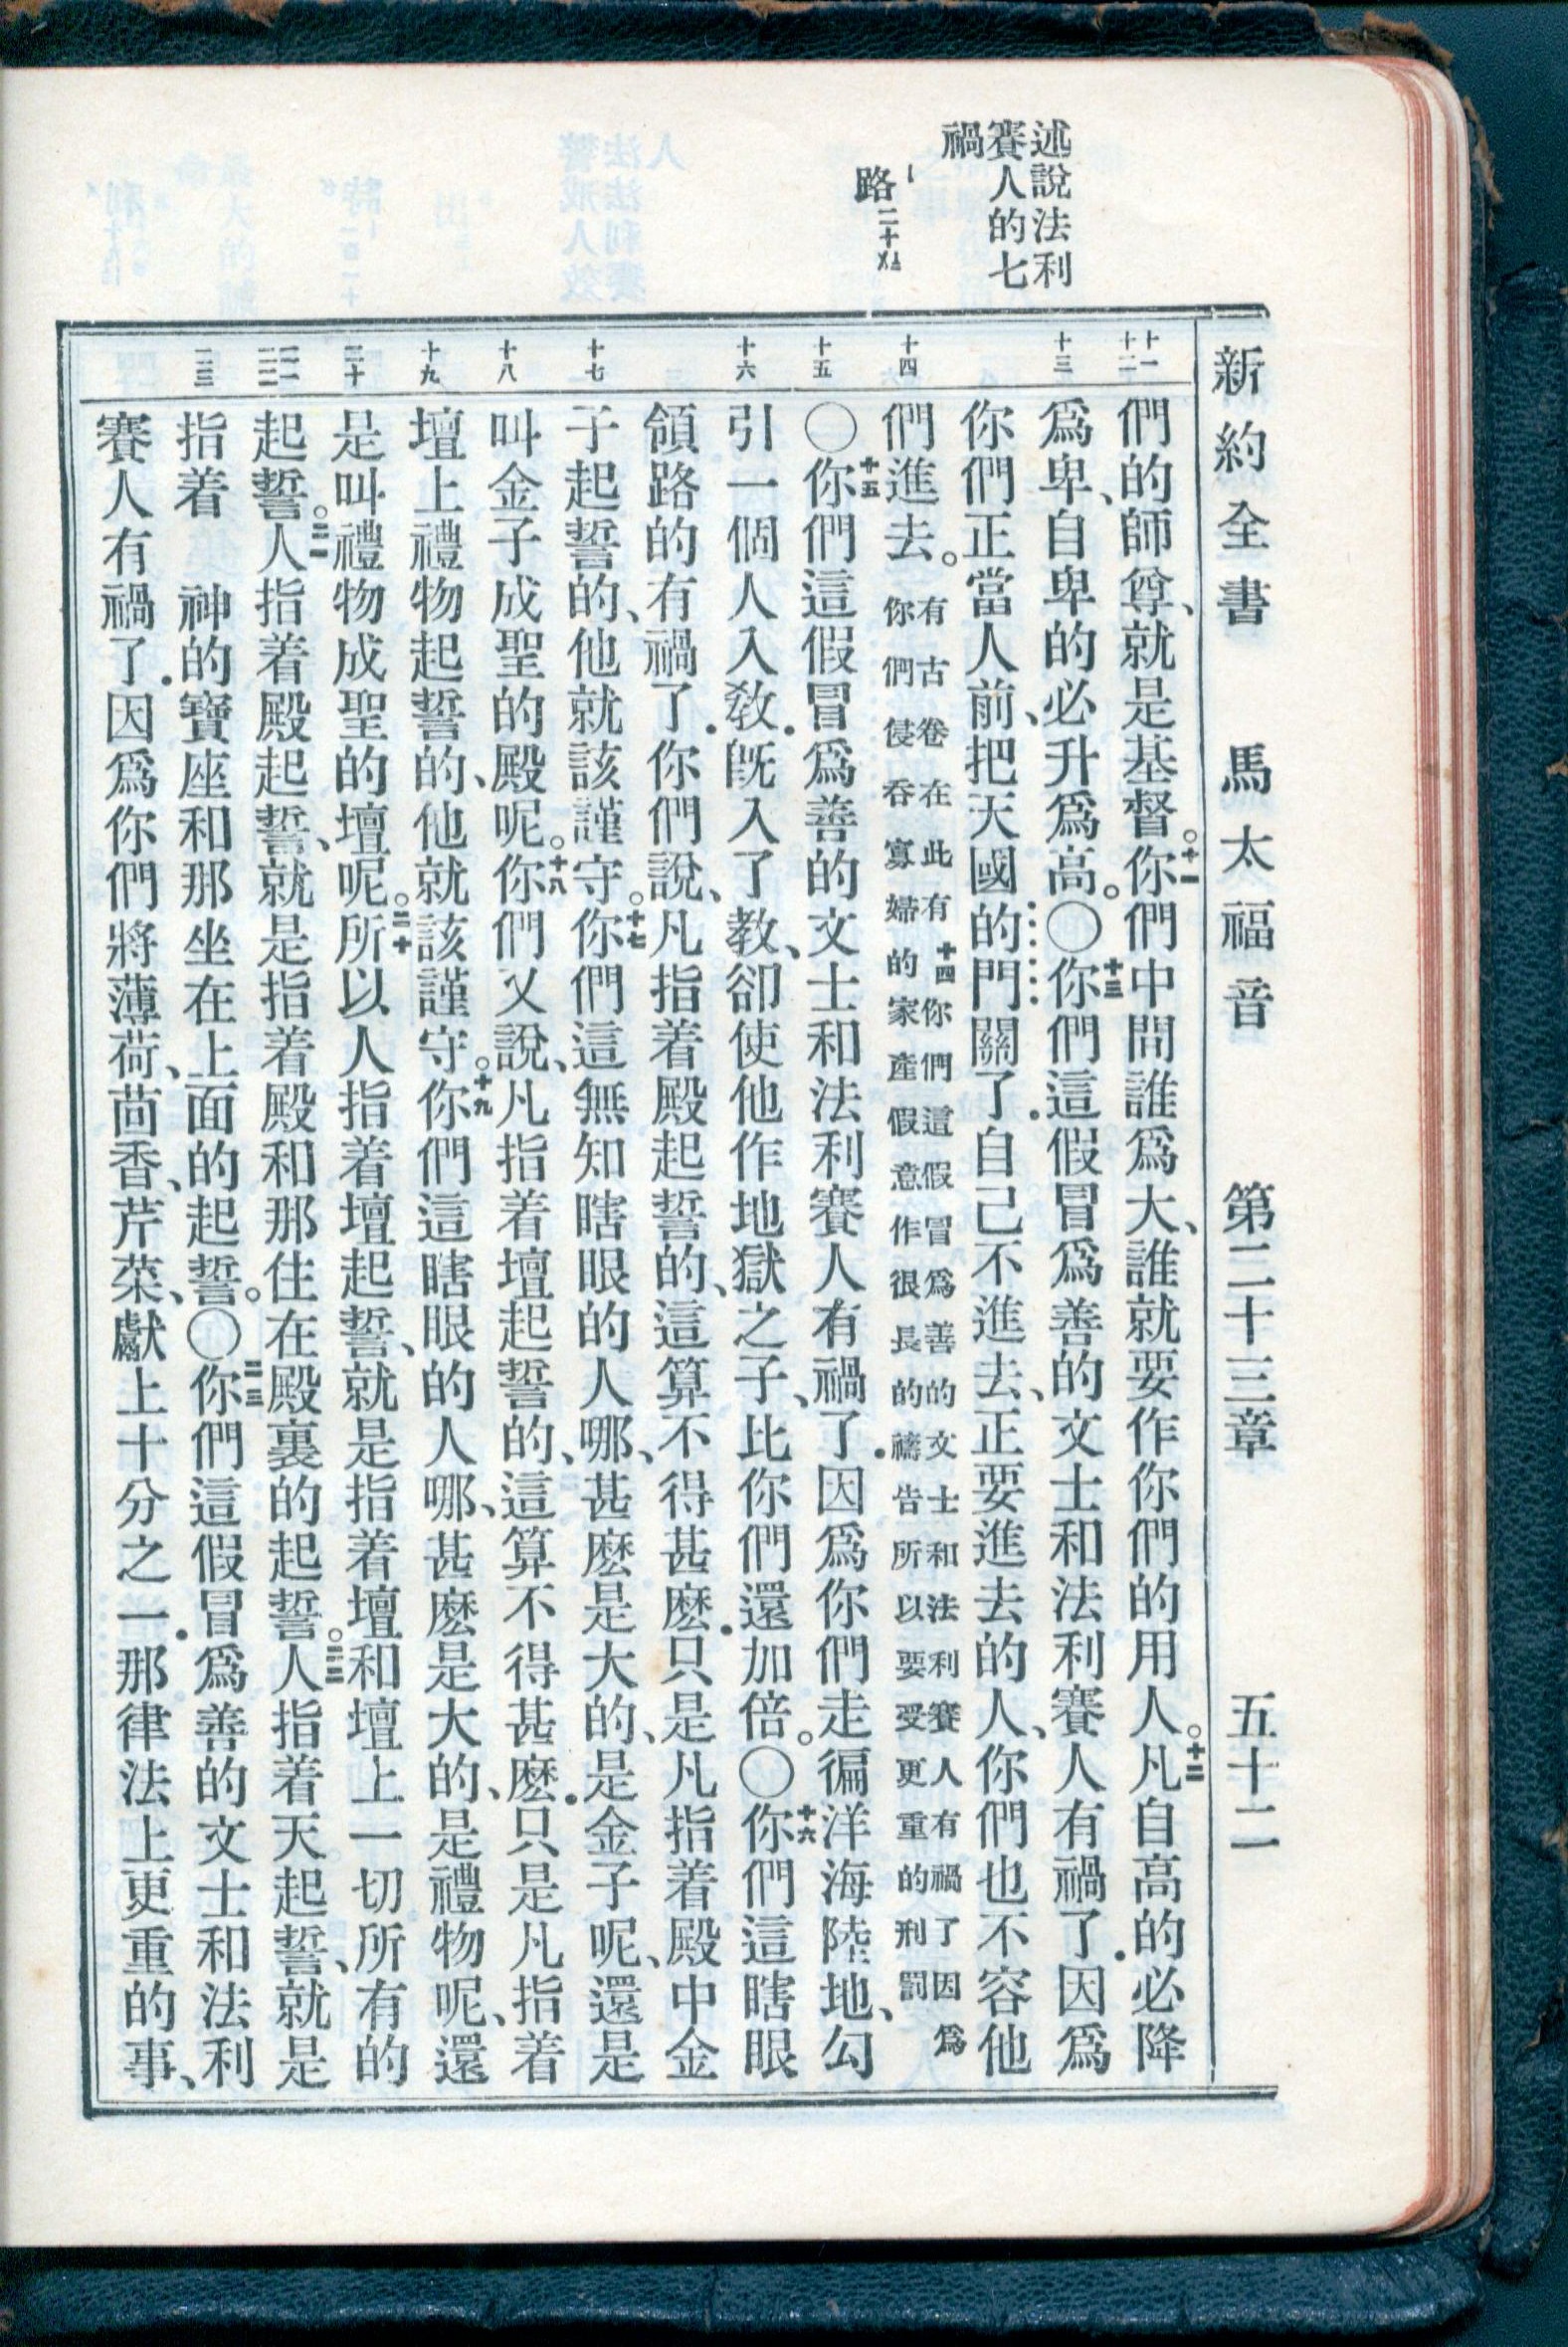 新約全書 馬太福音 第二十三章 五十二
述說法利
賽人的七
禍
路二十
十一
十二
十三
十四
十五
十六
十七
十八
十九
二十
二一
二二
二三
們的師尊、就是基督。十一你們中間誰爲大、誰就要作你們的用人。十二凡自高的必降
爲卑、自卑的必升爲高。〇十三你們這假冒爲善的文士和法利賽人有禍了．因爲
你們正當人前、把天國的門關了．自己不進去、正要進去的人、你們也不容他
們進去。有古卷在此有十四你們這假冒爲善的文士和法利賽人有禍了因爲
你們侵吞寡婦的家產假意作很長的禱告所以要受更重的刑罰
〇十五你們這假冒爲善的文士和法利賽人有禍了．因爲你們走徧洋海陸地、勾
引一個人入敎．旣入了教、卻使他作地獄之子、比你們還加倍。〇十六你們這瞎眼
領路的有禍了．你們說、凡指着殿起誓的、這算不得甚麽．只是凡指着殿中金
子起誓的、他就該謹守。十七你們這無知瞎眼的人哪、甚麽是大的、是金子呢、還是
叫金子成聖的殿呢。十八你們又說、凡指着壇起誓的、這算不得甚麽．只是凡指着
壇上禮物起誓的、他就該謹守。十九你們這瞎眼的人哪、甚麽是大的、是禮物呢、還
是叫禮物成聖的壇呢。二十所以人指着壇起誓、就是指着壇和壇上一切所有的
起誓。二一人指着殿起誓、就是指着殿和那住在殿裏的起誓。二二人指着天起誓、就是
指着 神的寶座和那坐在上面的起誓。〇二三你們這假冒爲善的文士和法利
賽人有禍了．因爲你們將薄荷、茴香、芹菜、獻上十分之一．那律法上更重的事、